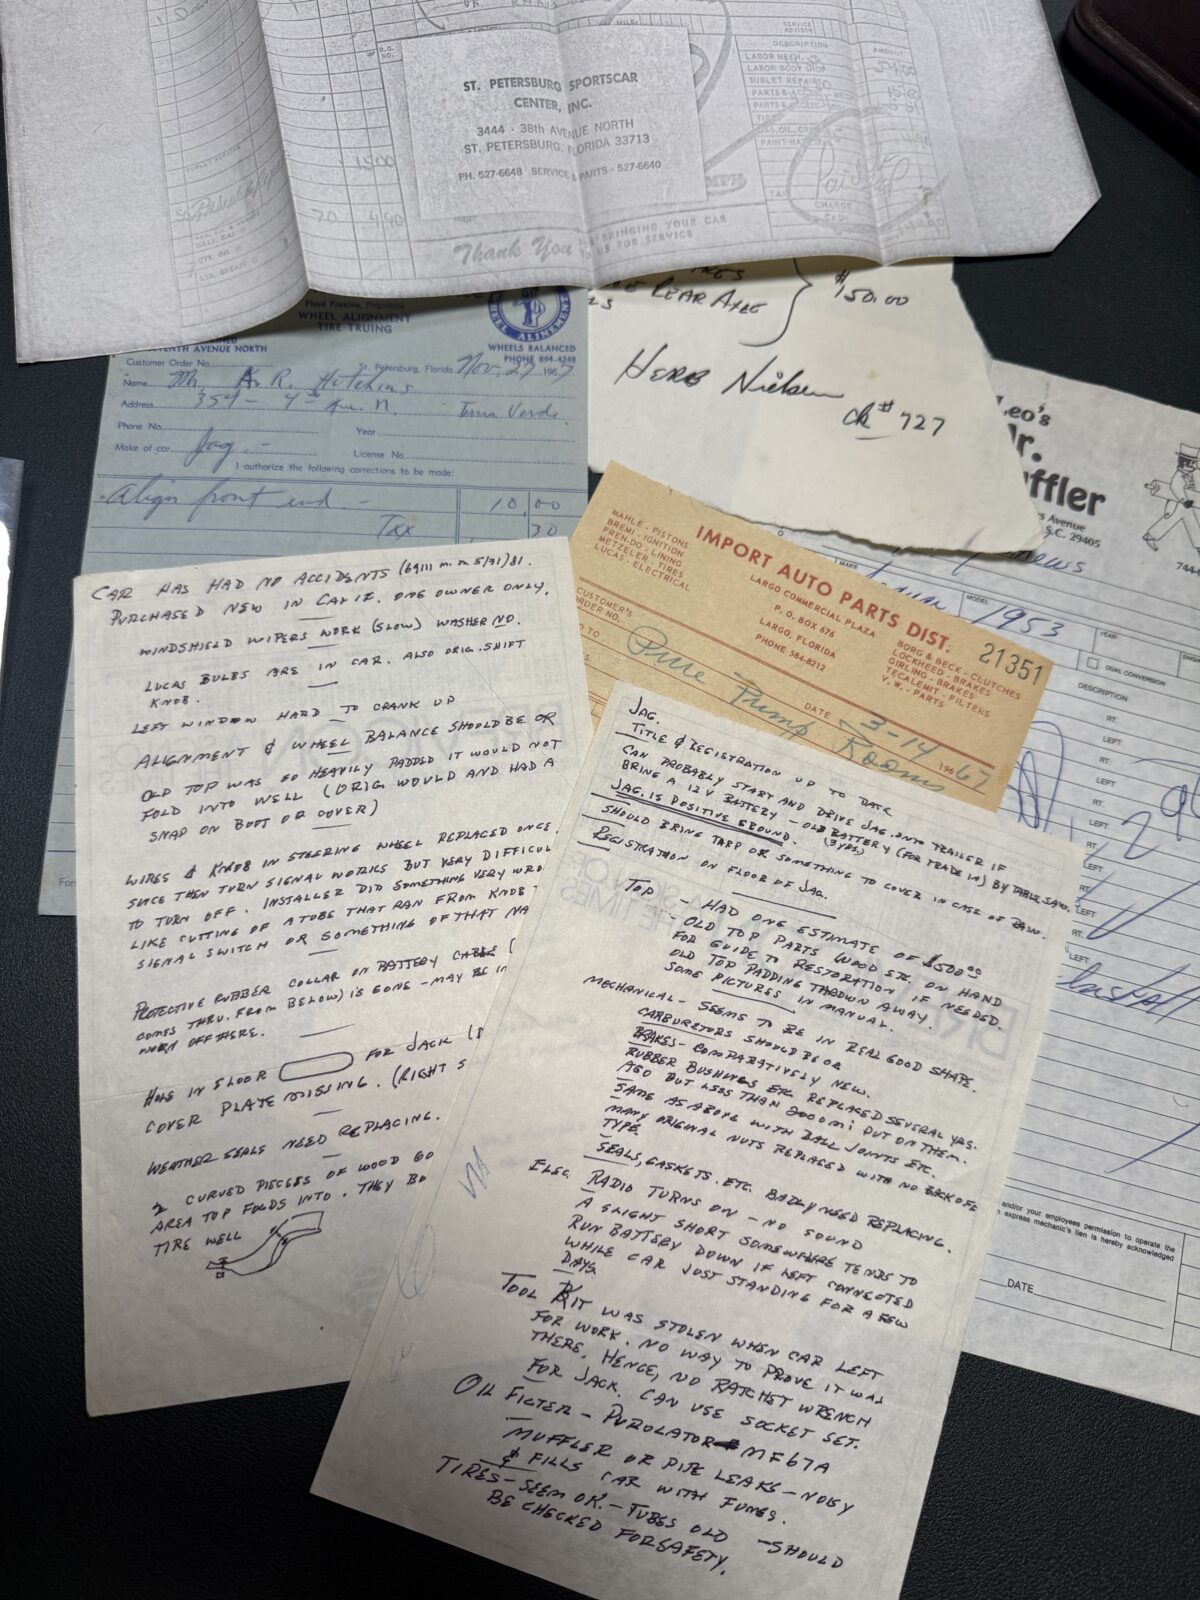 R.O. NO.
SERVICE ADVISOR
DESCRIPTION
AMOUNT
LABOR MECH.
LABOR BODY SHOP
SUBLET REPAIRS
PARTS &
PARTS &
GAS, OIL,
PAINT-MATERIAL
TAX
CHARGE
CASH
ST. PETERSBURG SPORTSCAR
CENTER, INC.
3444 - 38th AVENUE NORTH
ST. PETERSBURG, FLORIDA 33713
PH. 527-6648 SERVICE & PARTS - 527-6640
1500
Paid
Thank You FOR BRINGING YOUR CAR
TO US FOR SERVICE
REAR AXLE
$150.00
HERB NIELSEN
CK # 727
WHEEL ALIGNMENT
TIRE TRUING
WHEEL ALINEMENT
SEVENTH AVENUE NORTH
WHEELS BALANCED
PHONE 894-4248
Customer Order No.
St. Petersburg, Florida Nov. 27 1967
Name Mr. A. R. Hotchins
Address 354 - 4th Ave. N. Tierra Verde
Phone No. Year
Make of car Jag. License No.
I authorize the following corrections to be made:
Align front end - 10.00
Tax 30
Leo's
Mr.
Muffler
Avenue
S.C. 29405
MAKE Jaguar MODEL 1953 YEAR
DUAL CONVERSION
DESCRIPTION
RT.
LEFT
RT.
LEFT
RT.
LEFT
RT.
LEFT
RT.
LEFT
LEFT
and/or your employees permission to operate the
express mechanic's lien is hereby acknowledged
DATE
MAHLE - PISTONS
BREMI - IGNITION
FREN-DO - LINING
METZELER - TIRES
LUCAS - ELECTRICAL
IMPORT AUTO PARTS DIST.
LARGO COMMERCIAL PLAZA
P. O. BOX 676
LARGO, FLORIDA
PHONE 584-8212
BORG & BECK - CLUTCHES
LOCKHEED - BRAKES
GIRLING - BRAKES
TECALEMIT - FILTERS
V.W. - PARTS
21351
CUSTOMER'S
ORDER NO.
DATE 3-14 1967
Pure Pump Room
CAR HAS HAD NO ACCIDENTS (69111 mi. on 5/31/81.
PURCHASED NEW IN CALIF. ONE OWNER ONLY.
WINDSHIELD WIPERS WORK (SLOW) WASHER NO.
LUCAS BULBS ARE IN CAR. ALSO ORIG. SHIFT
KNOB.
LEFT WINDOW HARD TO CRANK UP
ALIGNMENT & WHEEL BALANCE SHOULD BE OK
OLD TOP WAS SO HEAVILY PADDED IT WOULD NOT
FOLD INTO WELL (ORIG WOULD AND HAD A
SNAP ON BOOT OR COVER)
WIRES & KNOB IN STEERING WHEEL REPLACED ONCE.
SINCE THEN TURN SIGNAL WORKS BUT VERY DIFFICUL
TO TURN OFF. INSTALLER DID SOMETHING VERY WRO
LIKE CUTTING OF A TUBE THAT RAN FROM KNOB
SIGNAL SWITCH OR SOMETHING OF THAT NA
PROTECTIVE RUBBER COLLAR ON BATTERY CABLE (
COMES THRU. FROM BELOW) IS GONE - MAY BE IN
WORN OFF THERE.
HOLE IN FLOOR FOR JACK (
COVER PLATE MISSING. (RIGHT S
WEATHER SEALS NEED REPLACING.
2 CURVED PIECES OF WOOD GO
AREA TOP FOLDS INTO. THEY BO
TIRE WELL
JAG.
TITLE & REGISTRATION UP TO DATE
CAN PROBABLY START AND DRIVE JAG. ONTO TRAILER IF
BRING A 12V BATTERY - OLD BATTERY (FOR TRADE IN) BY TABLE SAW.
(3 YRS.)
JAG. IS POSITIVE GROUND.
SHOULD BRING TARP OR SOMETHING TO COVER IN CASE OF RAIN.
REGISTRATION ON FLOOR OF JAG.
TOP - HAD ONE ESTIMATE OF $500.00
- OLD TOP PARTS WOOD ETC. ON HAND
FOR GUIDE TO RESTORATION IF NEEDED.
OLD TOP PADDING THROWN AWAY.
SOME PICTURES IN MANUAL.
MECHANICAL - SEEMS TO BE IN REAL GOOD SHAPE.
CARBURETORS SHOULD BE OK
BRAKES - COMPARATIVELY NEW.
RUBBER BUSHINGS ETC REPLACED SEVERAL YRS.
AGO BUT LESS THAN 2000 mi PUT ON THEM.
SAME AS ABOVE WITH BALL JOINTS ETC.
MANY ORIGINAL NUTS REPLACED WITH NO BACK OFF
TYPE.
SEALS, GASKETS. ETC. BADLY NEED REPLACING.
ELEC. RADIO TURNS ON - NO SOUND
A SLIGHT SHORT SOMEWHERE TENDS TO
RUN BATTERY DOWN IF LEFT CONNECTED
WHILE CAR JUST STANDING FOR A FEW
DAYS.
TOOL KIT WAS STOLEN WHEN CAR LEFT
FOR WORK. NO WAY TO PROVE IT WAS
THERE. HENCE, NO RATCHET WRENCH
FOR JACK. CAN USE SOCKET SET.
OIL FILTER - PUROLATOR MF67A
MUFFLER OR PIPE LEAKS - NOISY
& FILLS CAR WITH FUMES.
TIRES - SEEM OK. - TUBES OLD - SHOULD
BE CHECKED FOR SAFETY.